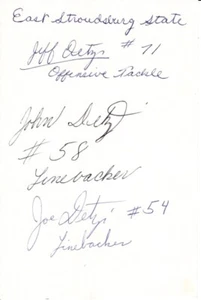 East Stroudsburg State
Jeff Dietz # 71
Offensive Tackle
John Dietz
# 58
Linebacker
Joe Dietz # 54
Linebacker